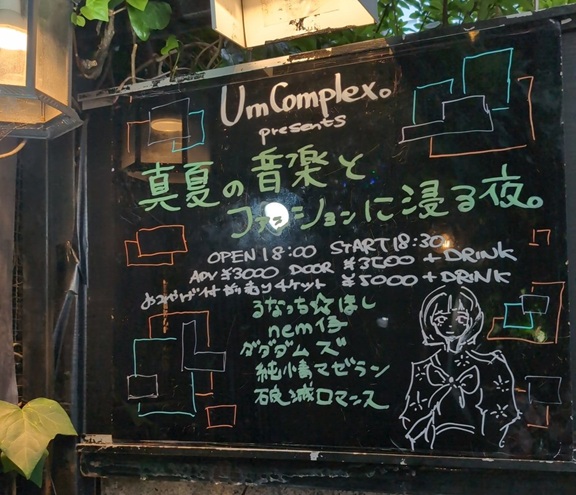 UmComplex。
presents
真夏の音楽と
ファッションに浸る夜。
OPEN 18:00 START 18:30
ADV ¥3000 DOOR ¥3500 + DRINK
おみやげ付きがっつりチケット ¥5000 + DRINK
るなっち☆ほし
nem仔
ダダダムズ
純情マゼラン
破滅ロマンス